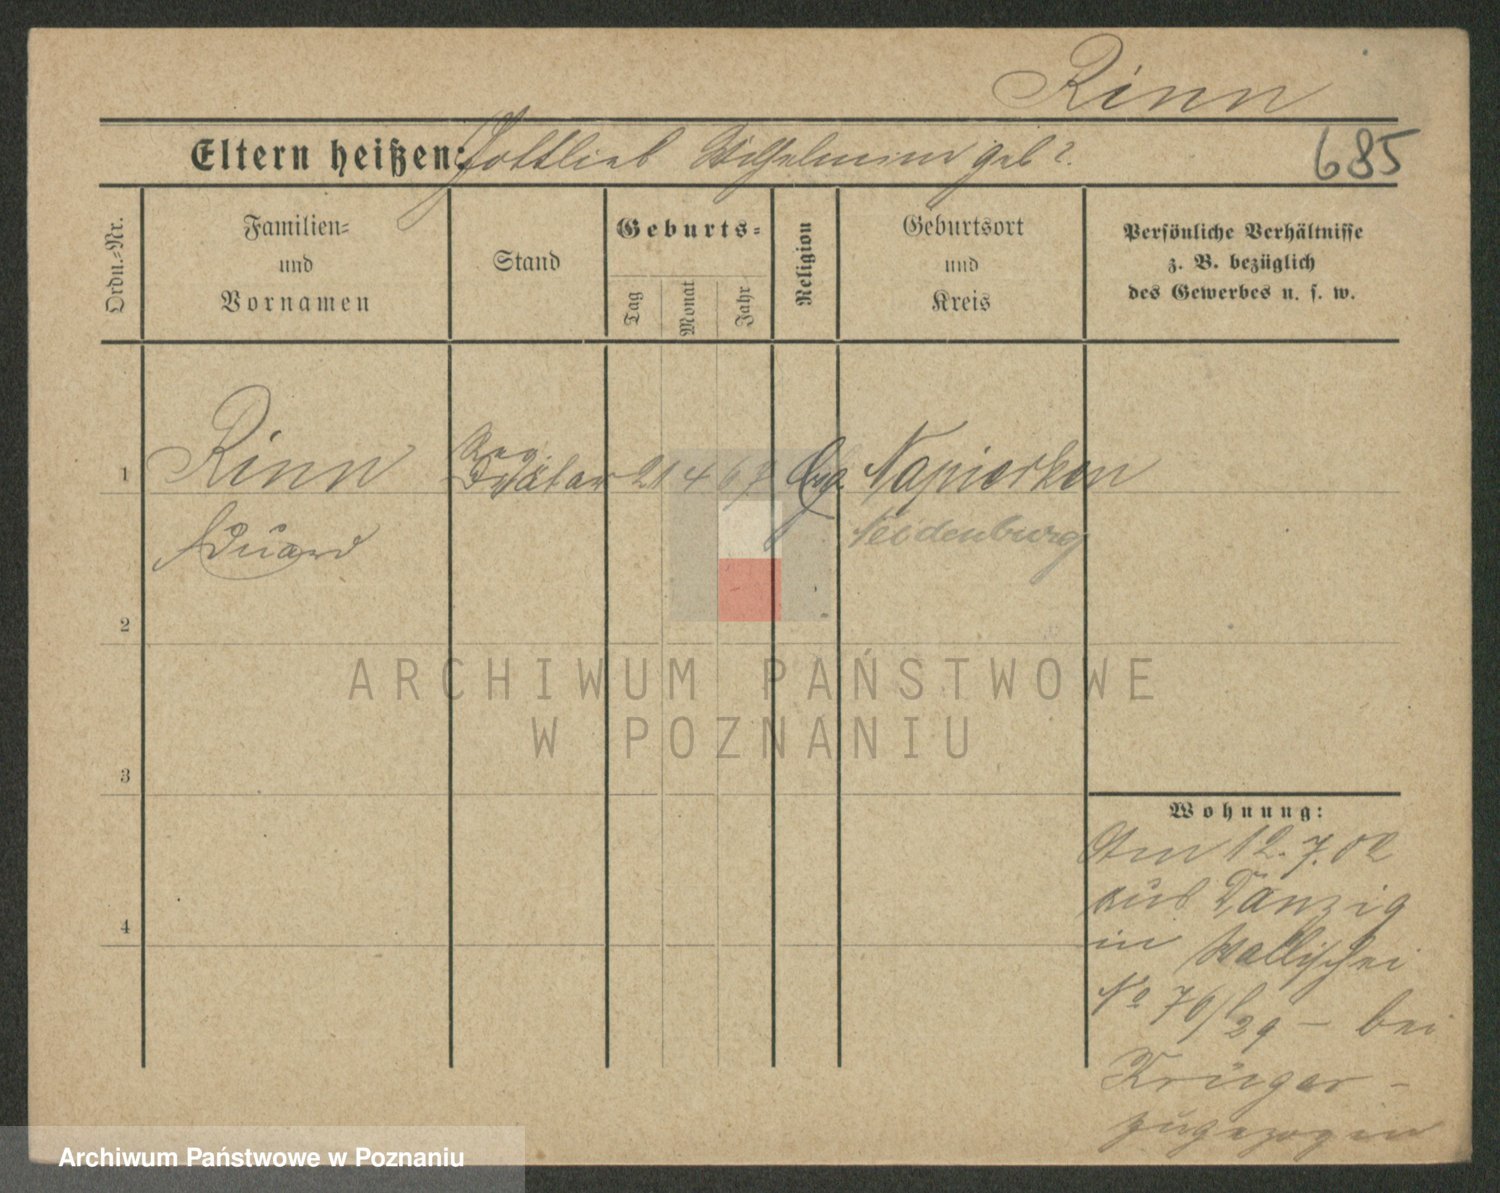 Rinn
Eltern heißen: Gottlieb Wilhelmine geb ?.
685
Ordn.=Nr.
Familien=
und
Vornamen
Stand
Geburts=
Tag
Monat
Jahr
Religion
Geburtsort
und
Kreis
Persönliche Verhältnisse
z. B. bezüglich
des Gewerbes u. s. w.
1
Rinn
Reg.
Diätar
21 4 67
Evg.
Napierken
Eduard
Neidenburg
2
3
4
ARCHIWUM PAŃSTWOWE
W POZNANIU
Wohnung:
Am 12.7.02
aus Danzig
in Wallischei
No 76/ 29 – bei
Krüger –
zugezogen
Archiwum Państwowe w Poznaniu